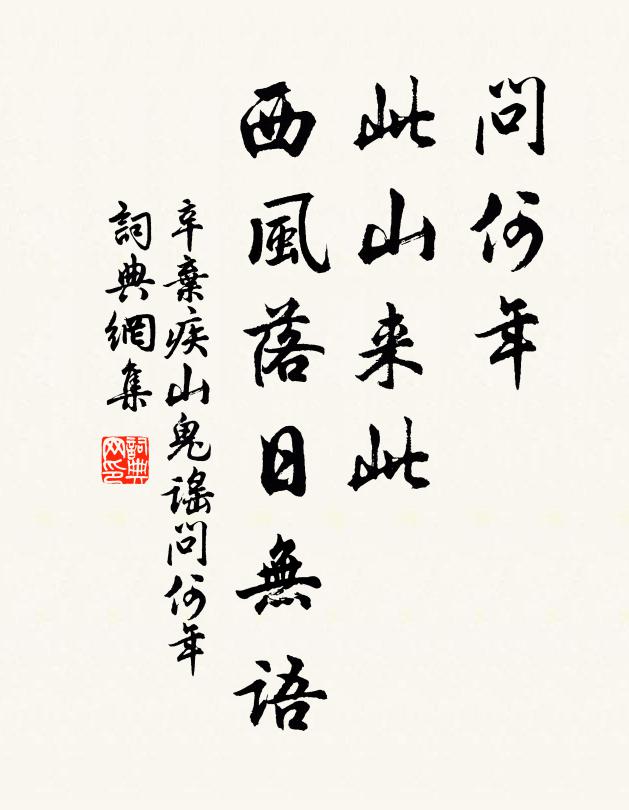 問何年
此山来此
西風落日無語
辛棄疾山鬼謠問何年
詞典網集
詞典
网印